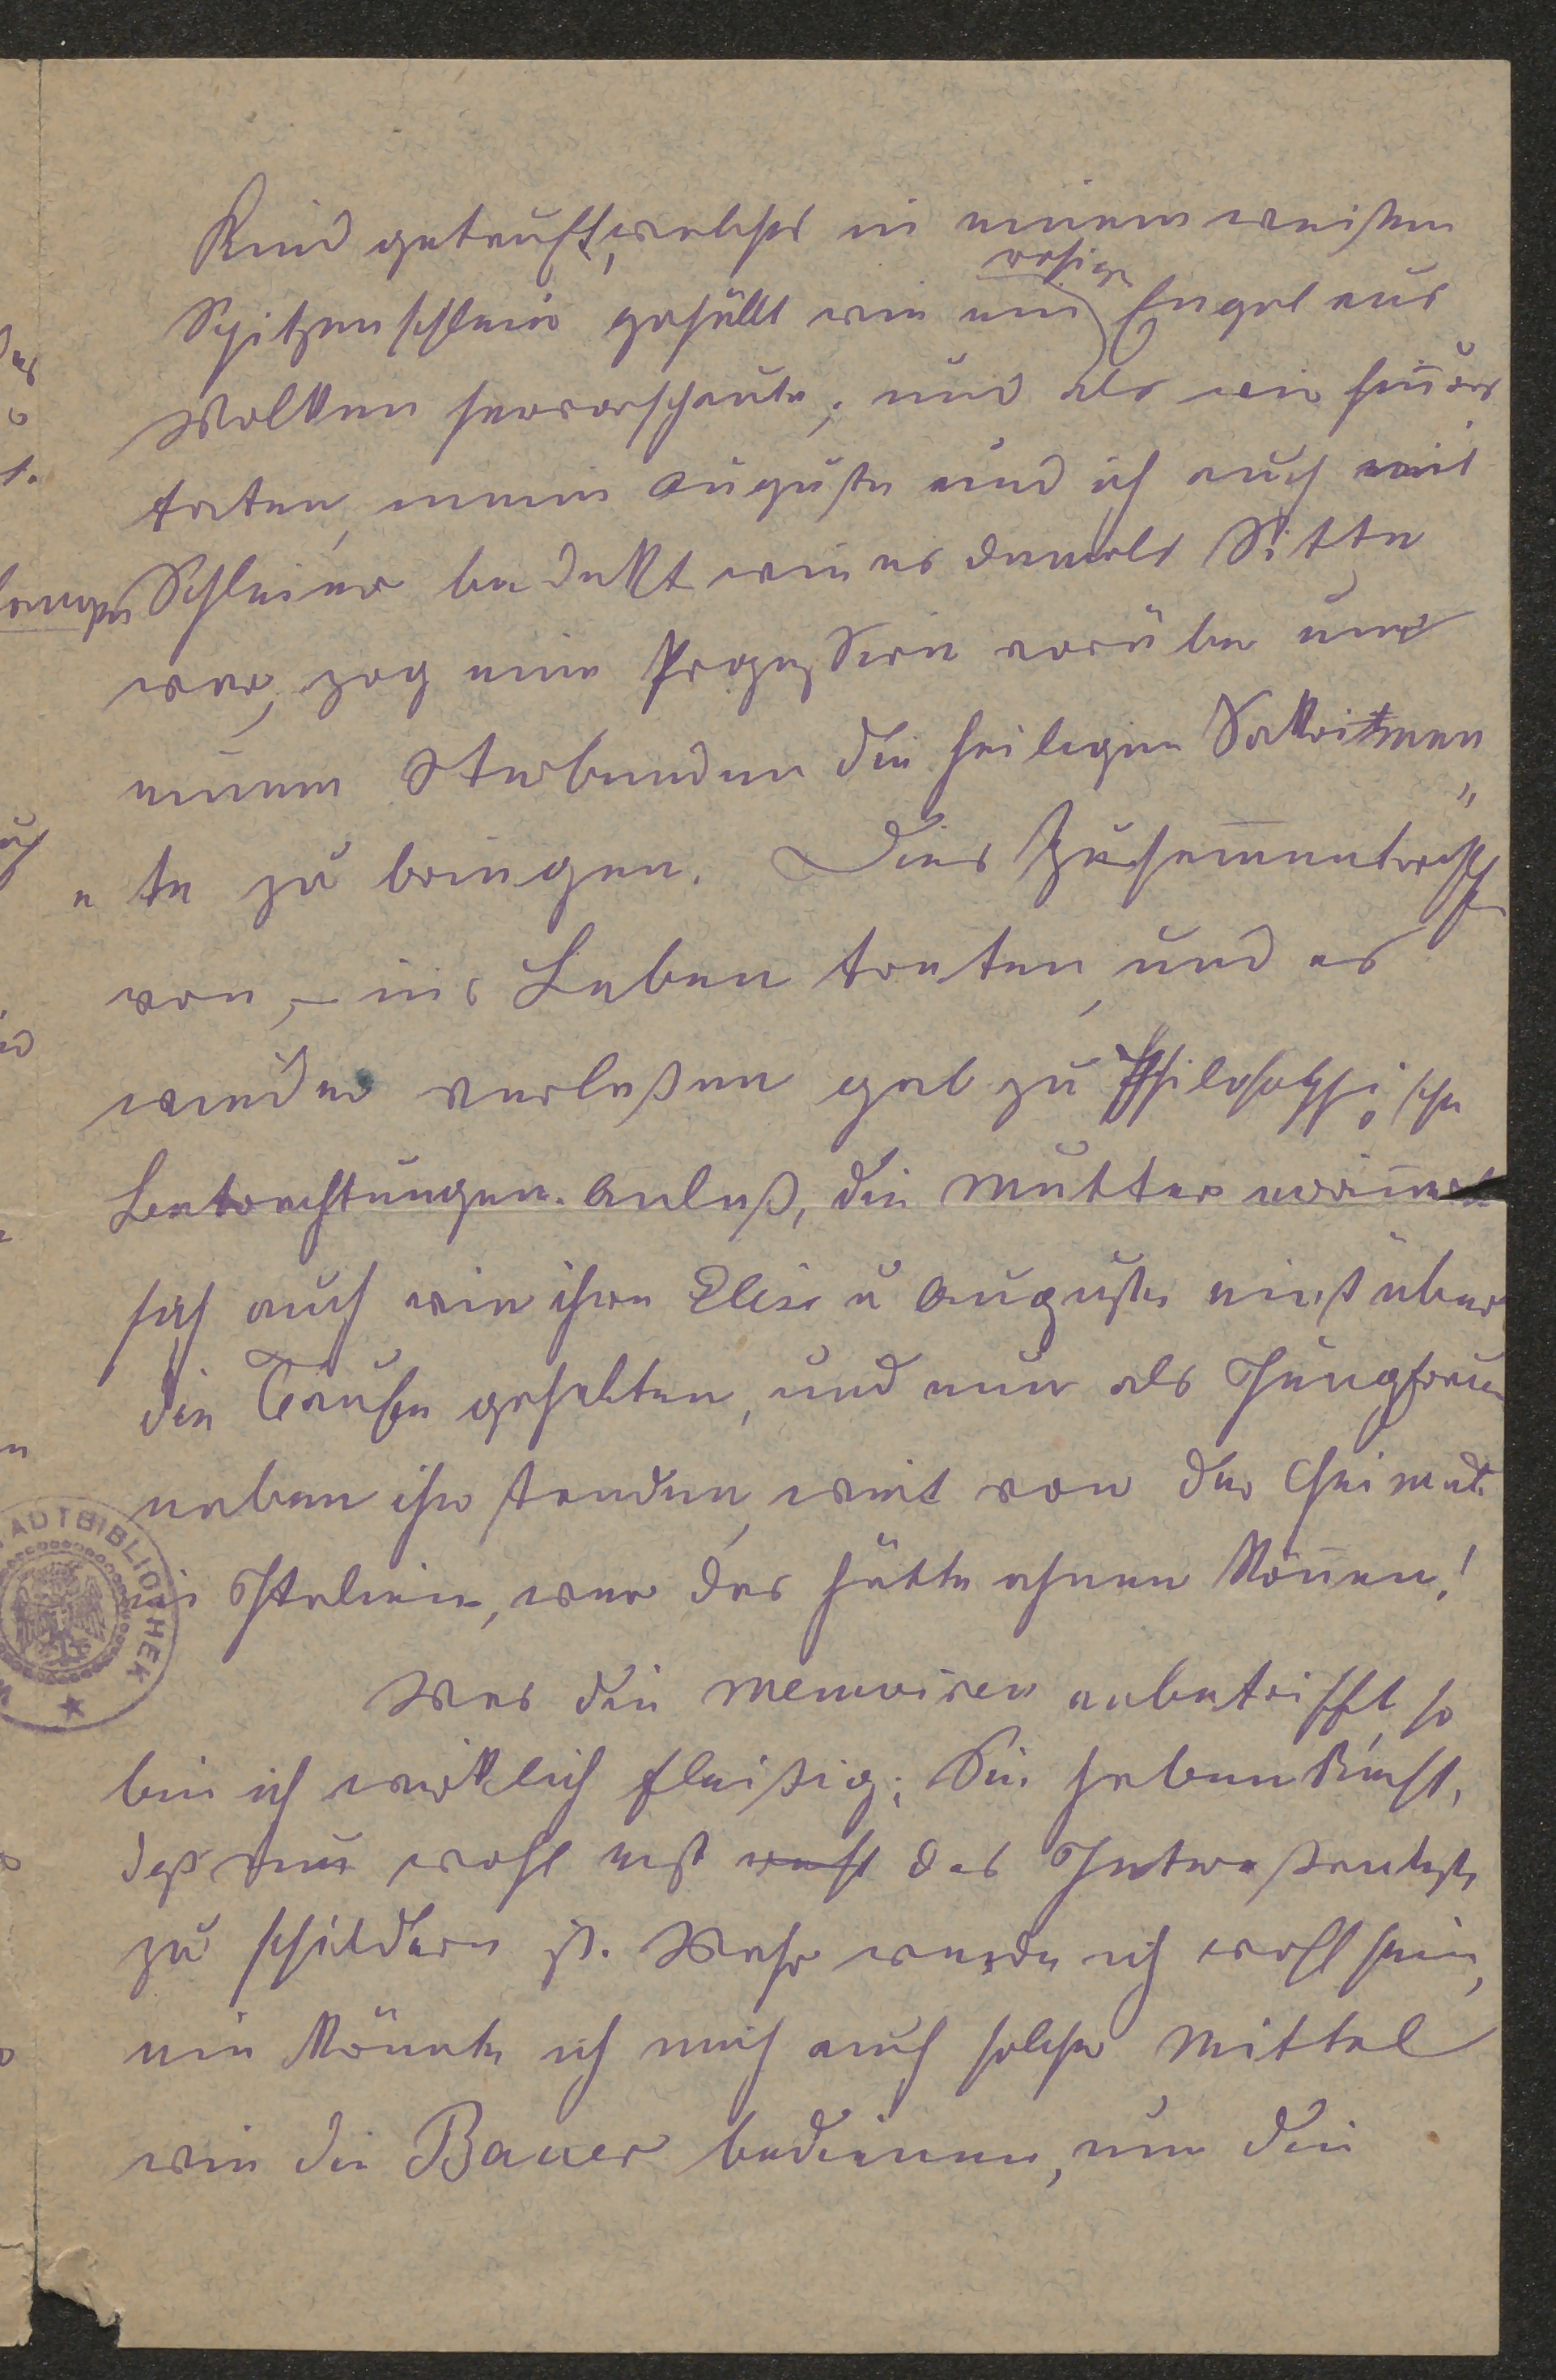 Kind getauft, welches in einem weißen
rosiger
Spitzenschleier gehüllt wie ein Engel aus
Wolken hervorschaute; und als wir hinaus
traten, meine Auguste und ich auch mit
langen Schleier bedekt wie es damals Sitte
war, zog eine Prozession vorüber um
einem Sterbenden die heiligen Sakramen
te zu bringen. Dies Zusammentreffen
von, – ins Leben treten, und es
wieder verlaßen gab zu Philosophische
Betrachtungen Anlaß, die Mutter erinnerte
sich auch wie ihre Elise u Auguste einst über
die Taufe gehalten, und nun als Jungfrauen
neben ihr standen, weit von der Heimat
in Italien, wer das hätte ahnen können!
Was die Memoiren anbetrifft, so
bin ich wirklich fleißig; Sie haben Recht,
daß nun wohl erst das Intereßanteste
zu schildern ist. Wahr werde ich wohl sein,
nie könnte ich mich auch solcher Mittel
wie die Bauer bedienen, um die
STADTBIBLIOTHEK